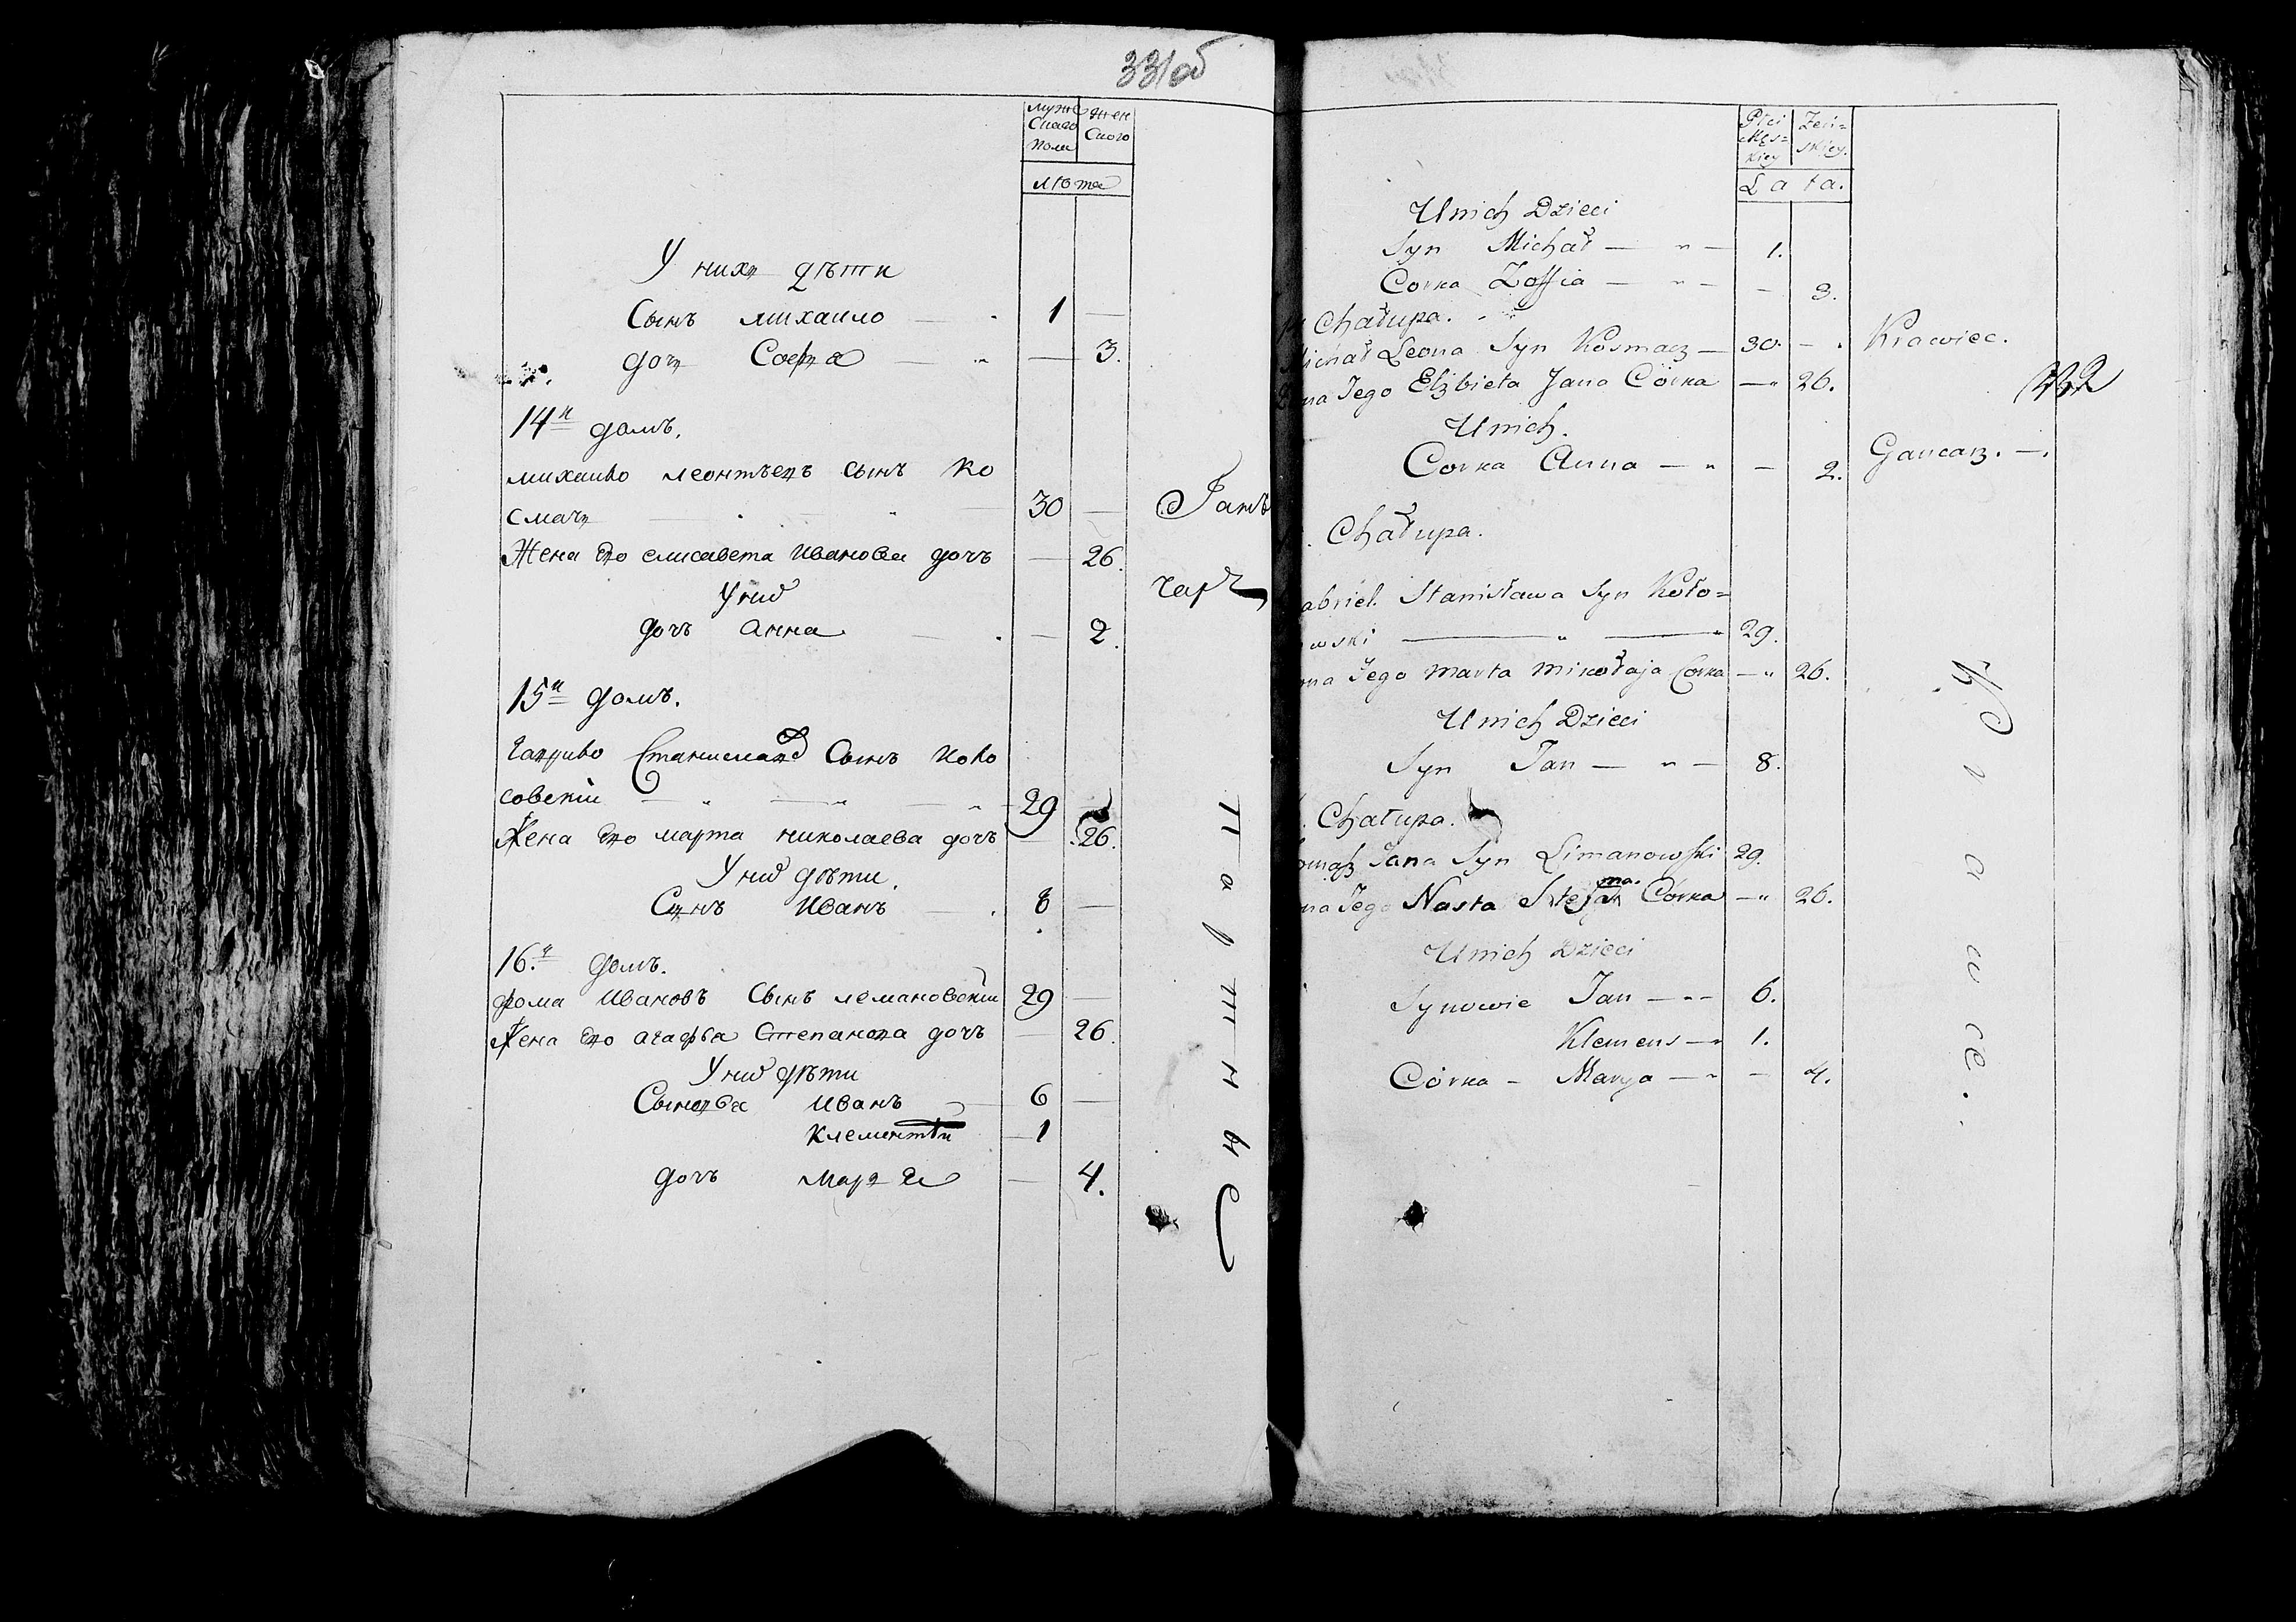 331об
Муже
скаго
пола
Жен
скаго
лѣта
У нихъ дѣти
Сынъ михаило — 1 —
дочь Софiя — 3.
14й домъ.
михаило леонтьевъ сынъ ко
смачъ 30 —
Жена его елисавета Иванова дочь — 26.
У нихъ
дочь Анна — 2.
15й домъ.
гаврило Станиславовъ Сынъ коло
совскiи 29 —
Жена его марта николаева дочь — 26.
У нихъ дѣти.
Сынъ Иванъ — 8 —
16.й домъ.
фома Ивановъ Сынъ лемановскiи 29 —
Жена его агафья Степанова дочь — 26.
У нихъ дѣти
Сыновья Иванъ — 6 —
Клементiи — 1
дочь Марья — 4.
чарь
Płci
Męs=
kiey
Żeń=
skiey.
Lata.
U nich Dzieci
Syn Michał — " — 1.
Corka Zoffia — " — — 3.
Chałupa.
ichał Leona Syn Kosmacz — 30. — . Krawiec.
na Jego Elżbieta Jana Córka — " 26.
U nich.
Corka Anna — " — 2. Gancarz. —.
Chałupa.
abriel. Stanisława Syn Koło=
wski — " — " 29.
na Jego Marta Mikołaja Corka — " 26.
U nich Dzieci
Syn Jan — " — 8.
Chałupa.
omasz Jana Syn Limanowski 29.
na Jego Nasta Stefana Córka — " 26.
U nich Dzieci
Synowie Jan — " — 6.
Klemens — " 1.
Córka — Marya — " — 4.